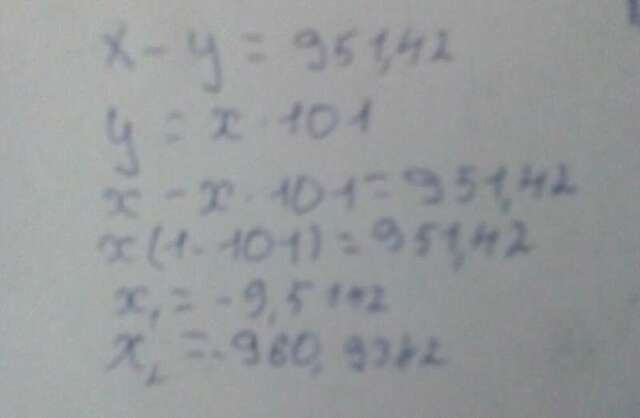 x - y = 951,42
y = x · 101
x - x · 101 = 951,42
x(1 - 101) = 951,42
x₁ = -9,5142
x₂ = -960,9342